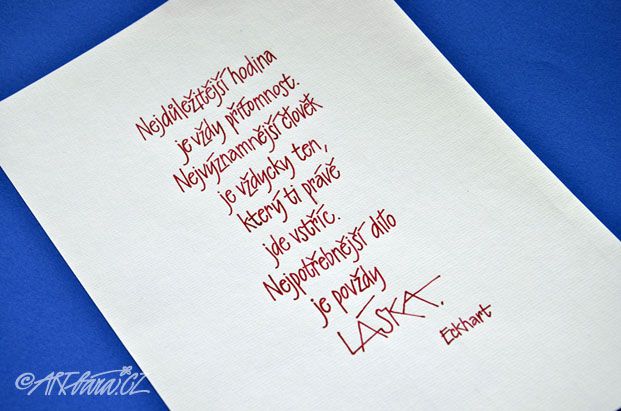 Nejdůležitější hodina
je vždy přítomnost.
Nejvýznamnější člověk
je vždycky ten,
který ti právě
jde vstříc.
Nejpotřebnější dílo
je povždy
LÁSKA.
Eckhart
©ARTbara.CZ